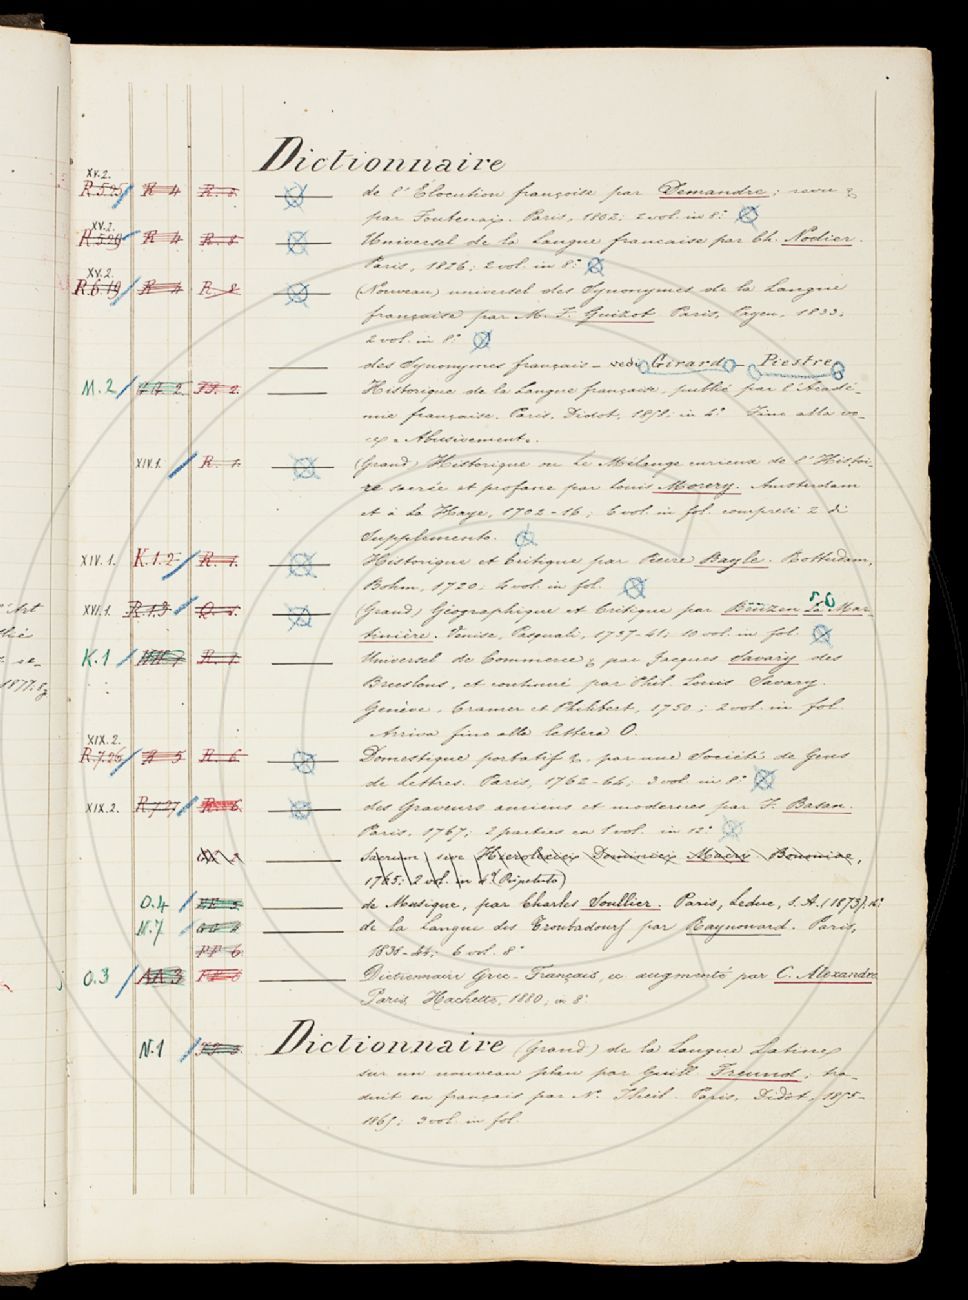 Dictionnaire
XV.2.
R.5.25 R 4 R. 8. de l'Elocution françoise par Demandre; revu &
par Fontenaix. Paris, 1802; 2 vol. in 8.º
XV.2.
R.5.20 R 4 R. 8. Universel de la Langue francaise par Ch. Nodier.
Paris, 1826; 2 vol. in 8.º
XV.2.
R.6.19 R 4 R. 8. (Nouveau) universel des Synonymes de la Langue
française par M. F. Guizot Paris, Payen, 1833,
2 vol. in 8.º
des Synonymes français – vedi Girard – Piestre
M.2 Historique de la Langue française, publié par l'Acadé-
mie française. Paris, Didot, in 4.º Fino alla vo-
ce « Abusivement ».
XIV.1. R. 1. (Grand) Historique ou Le Mélange curieux de l'Histoi-
re sacrée et profane par Louis Morery. Amsterdam
et à La Haye, 1702-16; 6 vol. in fol. compresi 2 di
Supplemento.
XIV.1. K.1.2 R. 1. Historique et Critique par Pierre Bayle. Rotterdam,
Bohm, 1720; 4 vol. in fol.
XVI.1. R.1.9 (Grand) Géographique et Critique par Bruzen La Mar-
tinière. Venise, Pasquali, 1737-41; 10 vol. in fol.
K.1 R. 1. Universel de Commerce &, par Jacques Savary des
Bruslons, et continué par Phil. Louis Savary.
Genève, Cramer et Philibert, 1750; 2 vol. in fol.
Arriva fino alla lettera O.
XIX.2.
R.7.26 R. 6. Domestique portatif &, par une Société de Gens
de Lettres. Paris, 1762-64; 3 vol. in 8.º
XIX.2. R.7.27 R. 6. des Graveurs anciens et modernes par F. Basan.
Paris, 1767; 2 parties en 1 vol. in 12.º
Sacrum sive Hierolexicon Dominici Macri Bononiae,
1765; 2 vol. in 4.º (Ripetuto)
O.4 de Musique, par Charles Soullier. Paris, Leduc, s.A. (1873).
N.7 de la Langue des Troubadours par Raynouard. Paris,
FF 6 1838-44; 6 vol. 8.º
O.3 AA 3 Dictionnaire Grec-Français, augmenté par C. Alexandre
Paris, Hachette, 1880, in 8.º
N.1 Dictionnaire (Grand) de la Langue Latine
sur un nouveau plan par Guill Freund, tra-
duit en français par N. Theil. Paris, Didot, 1855-
1865; 3 vol. in fol.